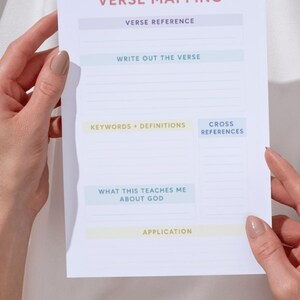 VERSE MAPPING
VERSE REFERENCE
WRITE OUT THE VERSE
KEYWORDS + DEFINITIONS
CROSS
REFERENCES
WHAT THIS TEACHES ME
ABOUT GOD
APPLICATION